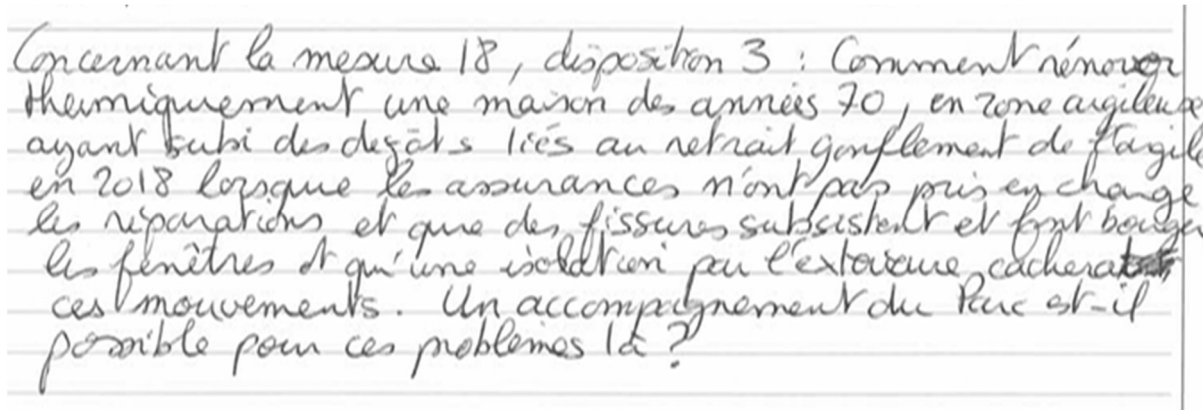 Concernant la mesure 18, disposition 3 : Comment rénover
thermiquement une maison des années 70, en zone argileuse
ayant subi des dégâts liés au retrait gonflement de l'argile
en 2018 lorsque les assurances n'ont pas pris en charge
les réparations et que des fissures subsistent et font bouger
les fenêtres et qu'une isolation par l'exterieure cachera
ces mouvements. Un accompagnement du Parc est-il
possible pour ces problèmes là ?